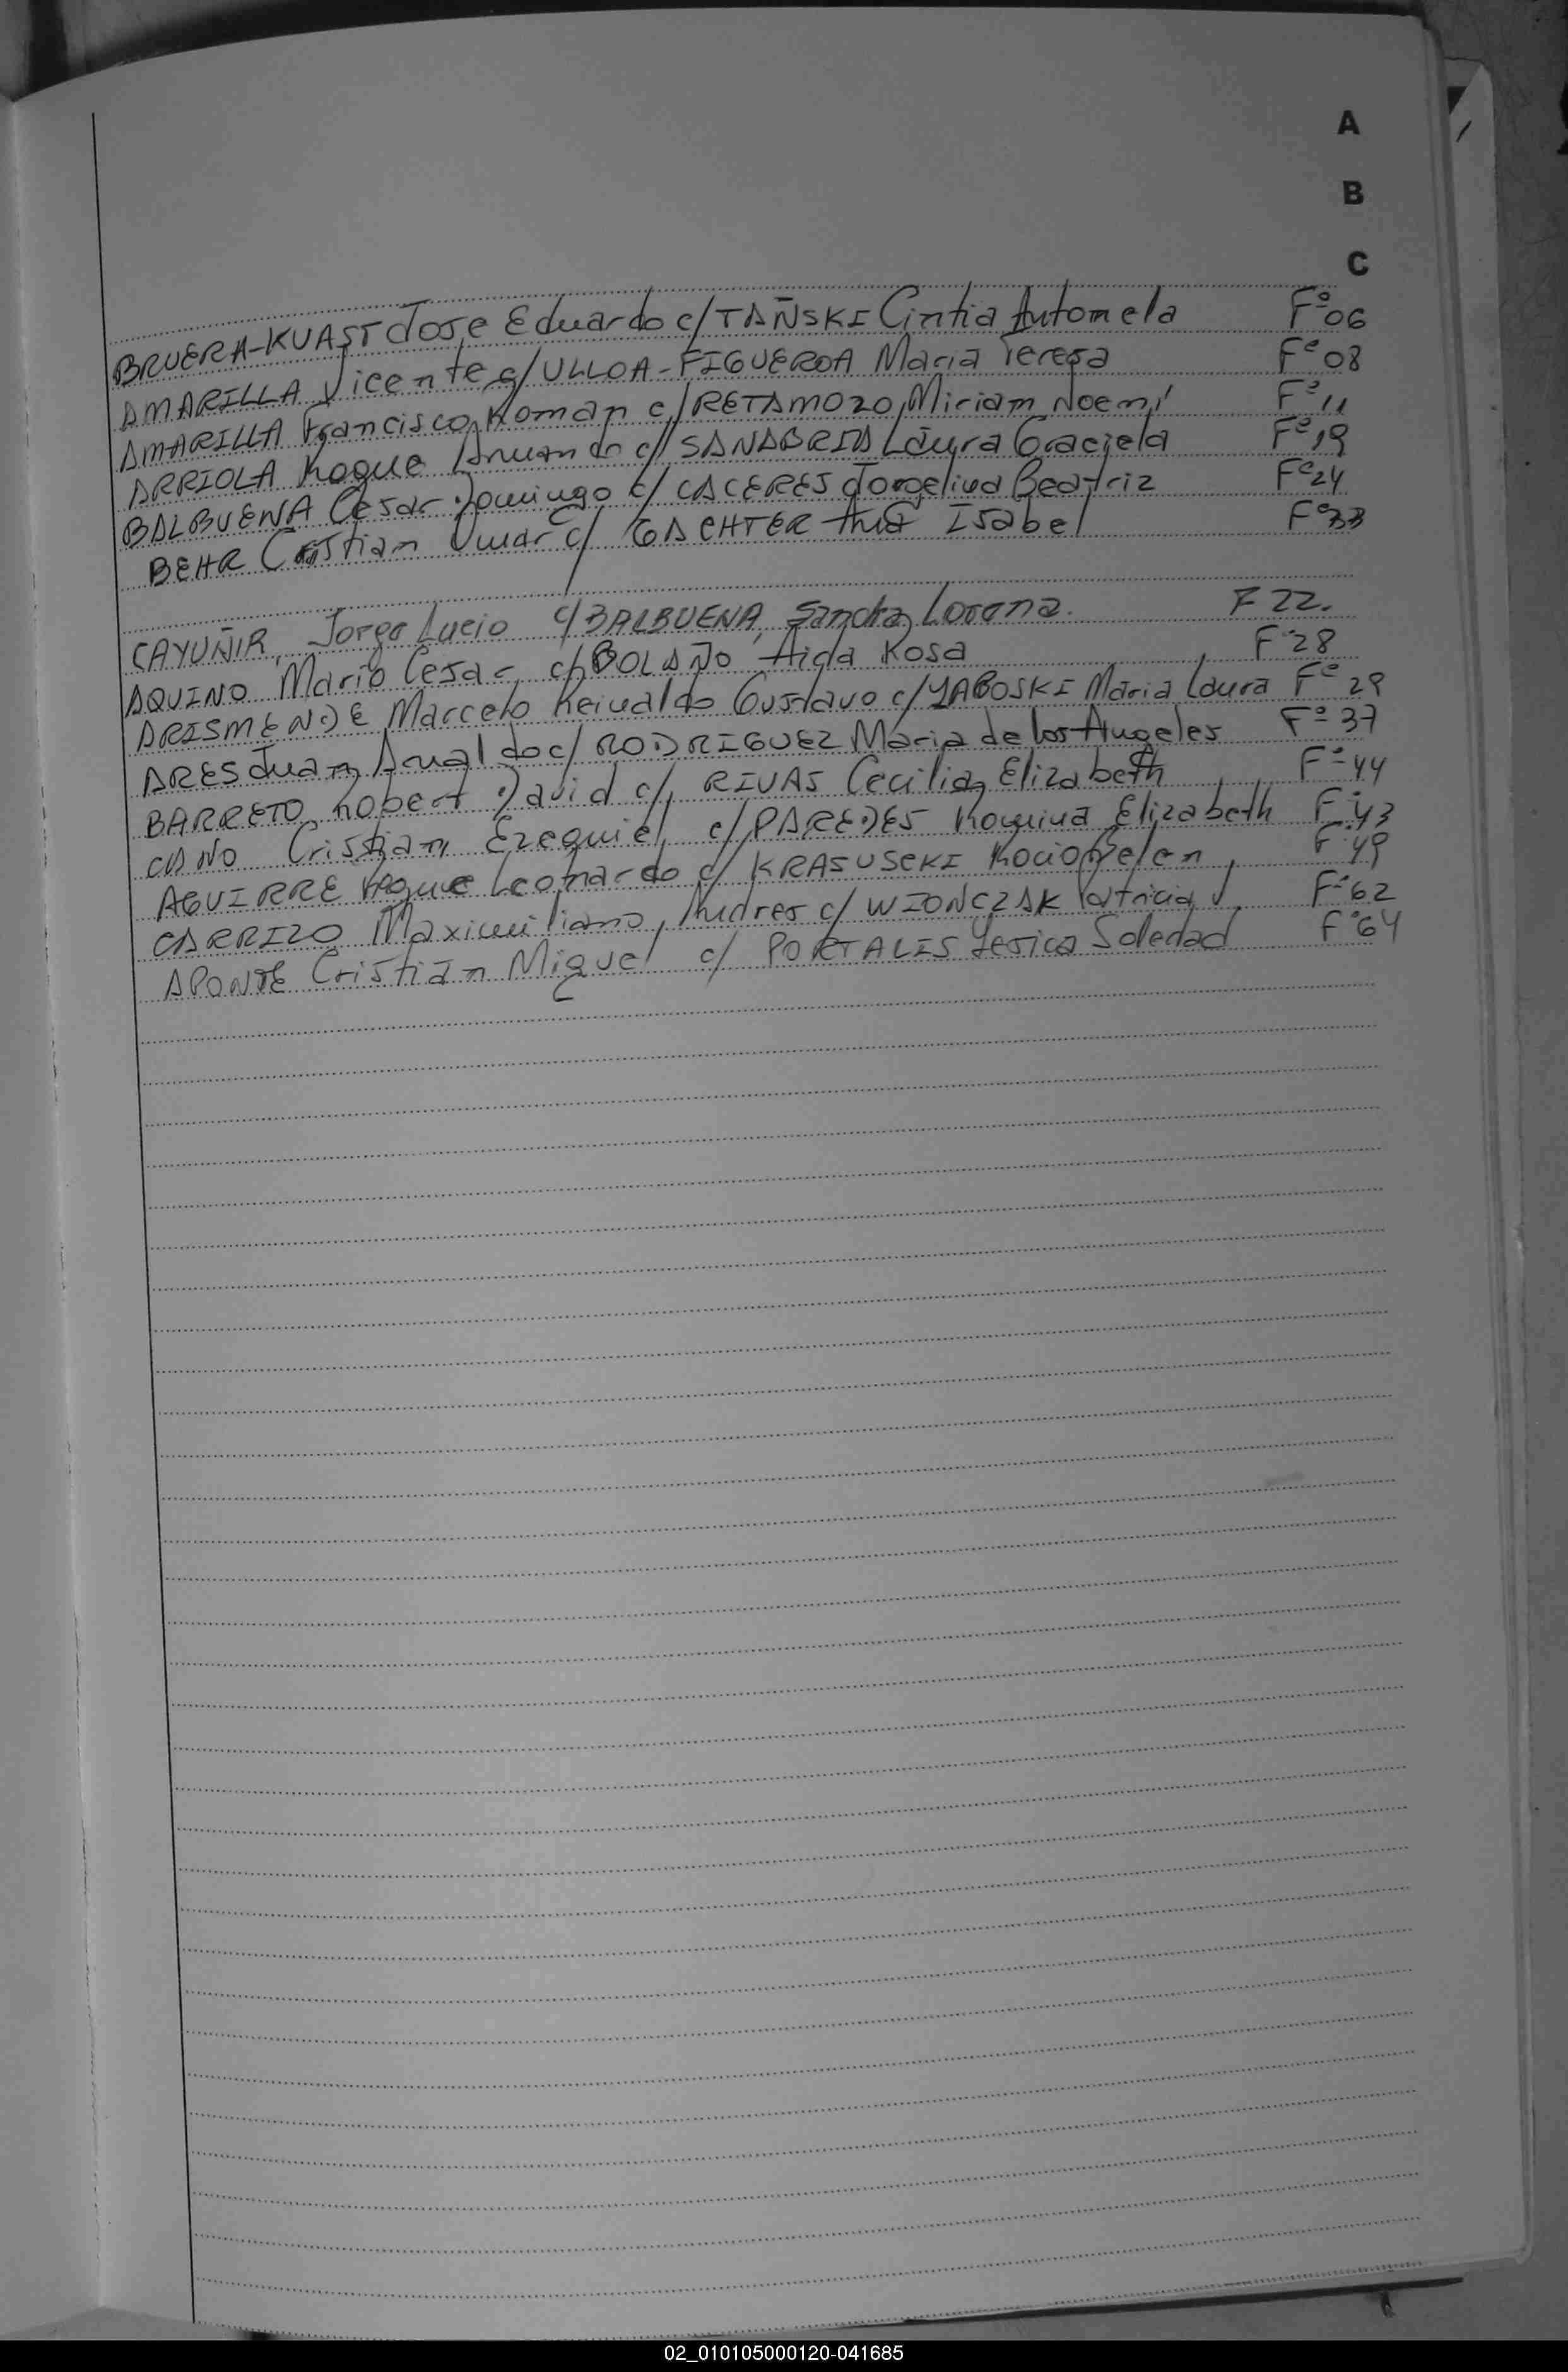 A
B
C
BRUERA-KUAST Jose Eduardo c/ TAÑSKI Cintia Antonela Fº 06
AMARILLA Vicente c/ ULLOA-FIGUEROA Maria Teresa Fº 08
AMARILLA Francisco Roman c/ RETAMOZO, Miriam Noemí Fº 11
ARRIOLA Roque Armando c/ SANABRIA Laura Graciela Fº 19
BALBUENA Cesar Domingo c/ CACERES Jorgelina Beatriz Fº 24
BEHR Cristian Omar c/ GACHTER Ana Isabel Fº 33
CAYUÑIR, Jorge Lucio c/ BALBUENA, Sandra Lorena. F 22.
AQUINO Mario Cesar c/ BOLAÑO Aida Rosa F 28
ARISMENDE Marcelo Reinaldo Gustavo c/ YABOSKI Maria Laura Fº 29
ARES Juan Arnaldo c/ RODRIGUEZ Maria de los Angeles Fº 37
BARRETO Robert David c/ RIVAS Cecilia Elizabeth Fº 44
CANO Cristian Ezequiel c/ PAREDES Romina Elizabeth Fº 43
AGUIRRE Roque Leonardo c/ KRASUSCKI Rocio Belen Fº 49
CARRIZO Maximiliano, Andres c/ WIONCZAK Patricia Fº 62
APONTE Cristian Miguel c/ PORTALIS Yesica Soledad Fº 64
02_010105000120-041685